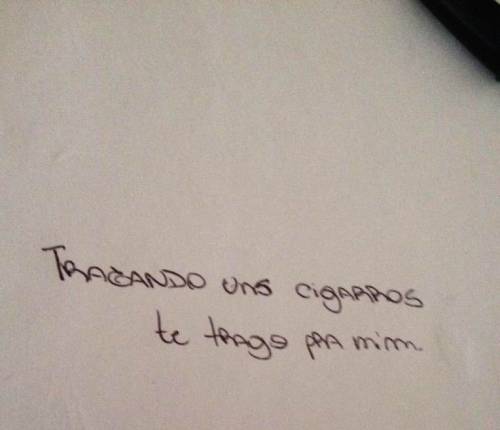 TRAGANDO uns cigARROS
te tRAgo pRA mim.